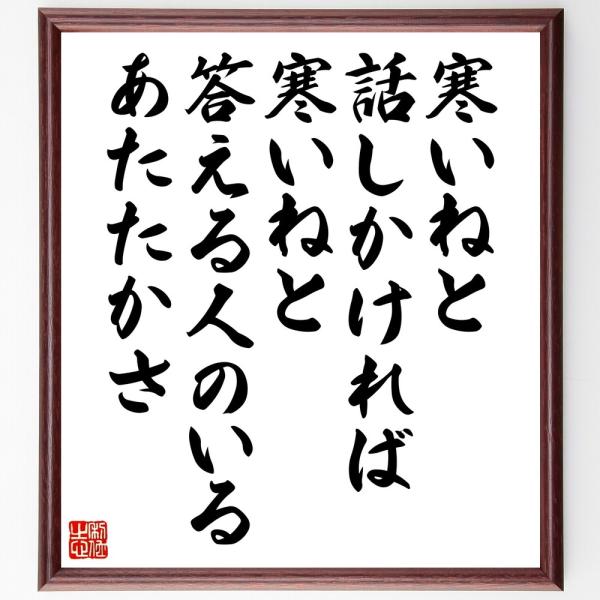 寒いねと
話しかければ
寒いねと
答える人のいる
あたたかさ